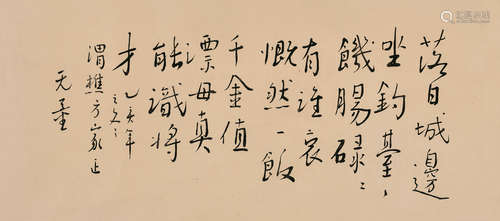 落日城邊
坐釣臺
饑腸碌々
有誰哀
慨然一飯
千金值
漂母真
能識將
才 乙亥年
渭樵方家正
无量